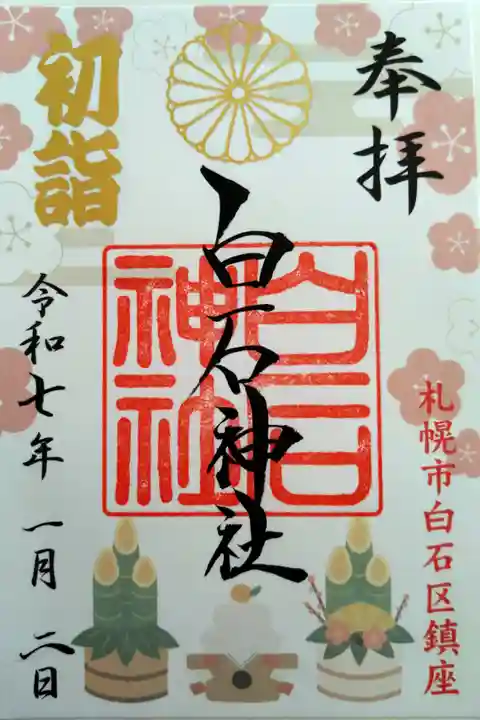 奉拝
札幌市白石区鎮座
白石神社
白石
神社
初詣
令和七年 一月 二日